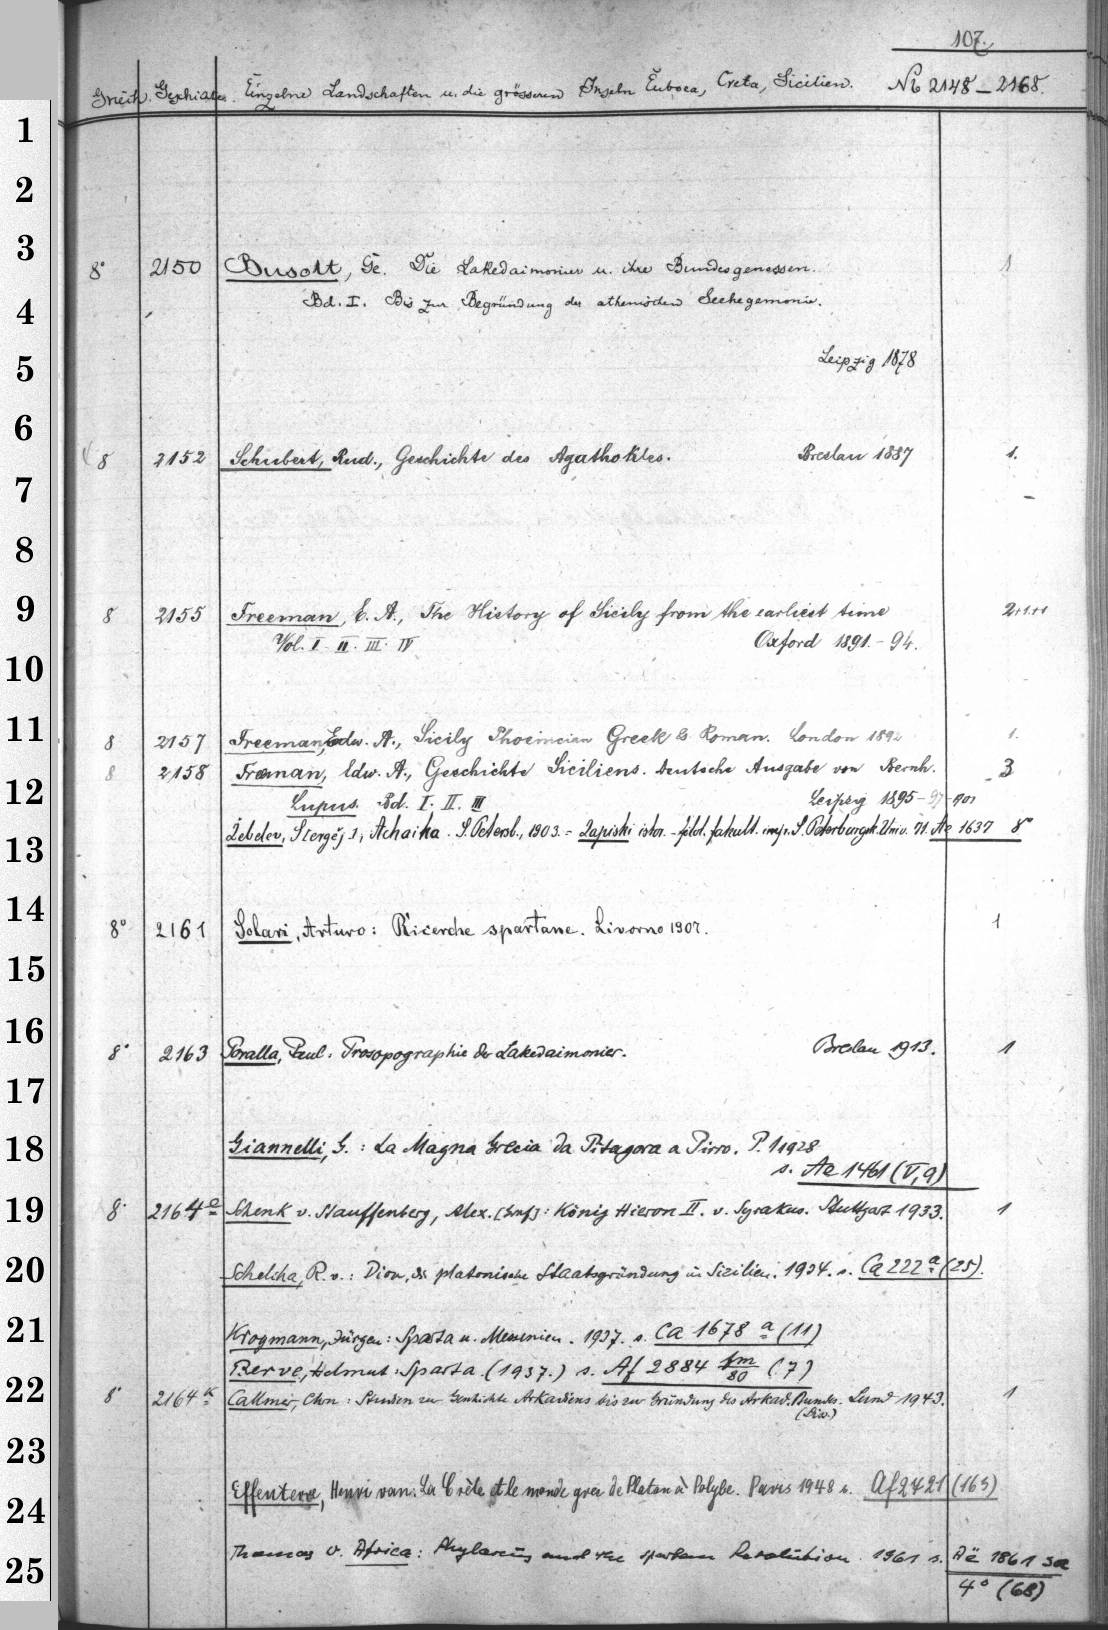 107.
Griech. Geschichte. Einzelne Landschaften u. die grösseren Inseln Euboea, Creta, Sicilien. No 2148-2168.
1
2
3
8° 2150 Busolt, Ge. Die Lakedaimonier u. ihre Bundesgenossen. 1
4
Bd. I. Bis zur Begründung der athenischen Seehegemonie.
5
Leipzig 1878
6
8 2152 Schubert, Rud., Geschichte des Agathokles. Breslau 1887 1.
7
8
9
8 2155 Freeman, E. A., The History of Sicily from the earliest time 2+1+1
Vol. I II. III. IV Oxford 1891.-94.
10
11
8 2157 Freeman, Edw. A., Sicily Phoenician Greek & Roman. London 1892 1.
8 2158 Freeman, Edw. A., Geschichte Siciliens. Deutsche Ausgabe von Bernh. 3
12
Lupus. Bd. I. II. III Leipzig 1895-97-901
Žebelev, Sergěj I., Achaika. S. Petersb., 1903. = Zapiski istor.-filol. fakult. imp. S. Peterburgsk. Univ. 71. Ae 1637 8°
13
14
8° 2161 Solari, Arturo: Ricerche spartane. Livorno 1907. 1
15
16
8° 2163 Poralla, Paul. Prosopographie der Lakedaimonier. Breslau 1913. 1
17
18
Giannelli, G.: La Magna Grecia da Pitagora a Pirro. P. 1 1928
s. Ae 1461 (V,9)
19
8° 2164e Schenk v. Stauffenberg, Alex. [Graf]: König Hieron II. v. Syrakus. Stuttgart 1933. 1
20
Scheliha, R. v.: Dion, die platonische Staatsgründung in Sizilien. 1934. s. Ca 222 a (25).
21
Krogmann, Jürgen: Sparta u. Messenien. 1937. s. Ca 1678 a (11)
Berve, Helmut: Sparta. (1937.) s. Af 2884 bm/80 (7)
22
8° 2164k Callmer, Chn: Studien zur Geschichte Arkadiens bis zur Gründung des Arkad. Bundes. Lund 1943. 1
(Diss.)
23
Effenterre, Henri van: La Crète et le monde grec de Platon à Polybe. Paris 1948 s. Af 2421 (163)
24
Thomas W. Africa: Phylarchus and the Spartan Revolution. 1961 s. Aë 1861 sa
25
4° (68)